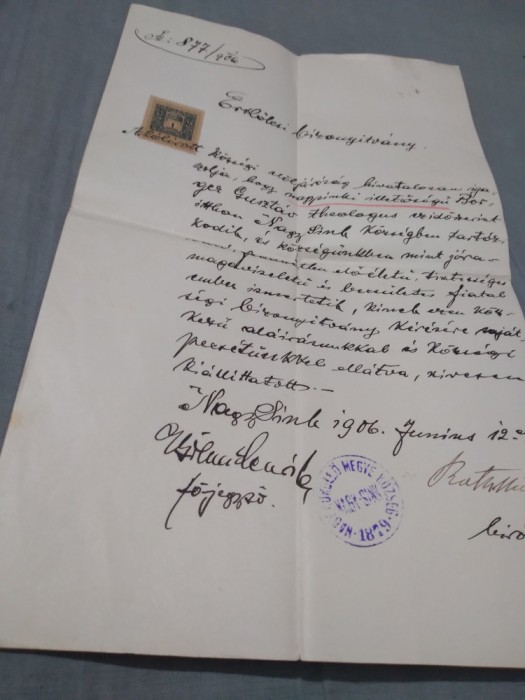 Sz: 877/906
Erkölcsi bizonyitvány.
Alólirott
Községi elöljáróság hivatalosan iga-
zolja, hogy nagysinki illetőségű Bor-
ger Gusztáv theologus ezidőszerint
itthon Nagy Sink községben tartóz-
kodik, és községünkben mint jóra-
való, előéletű, tisztességes
magaviseletű és becsületes fiatal
ember ismertetik, kinek ezen köz-
ségi bizonyitvány kérésére saját
kezű aláirásunkkal és községi
pecsétünkkel ellátva, szivesen
kiállittatott. –
Nagy Sink 1906. Junius 12-én
főjegyző.
biró
NAGY-KÜKÜLLŐ MEGYE KÖZSÉG 1879
NAGY-SINK